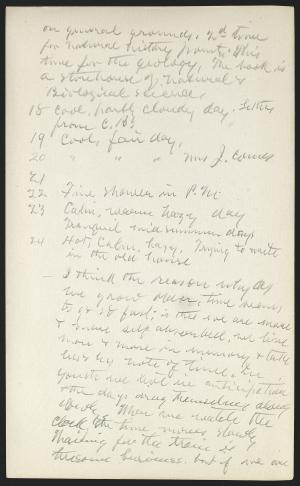 on general grounds, 2d time
for natural history points. This
time for the geology. The book is
a storehouse of natural &
Biological science.
18 Cool, partly cloudy day. Letter
from C. B.
19 Cool, fair day.
20 " " " Mrs J. comes
21
22 Fine shower in P.M.
23 Calm, warm hazy day
Tranquil midsummer days
24 Hot, Calm, hazy. Trying to write
in the old house
— I think the reason why as
we grow older, time seems
to go so fast, is that we are more
& more self absorbed, we live
more & more in memory & take
less note of time. In
youth we live in anticipation
& the days drag themselves along
slowly. When we watch the
clock, the time moves slowly
Waiting for the train is
tiresome business. but if we are